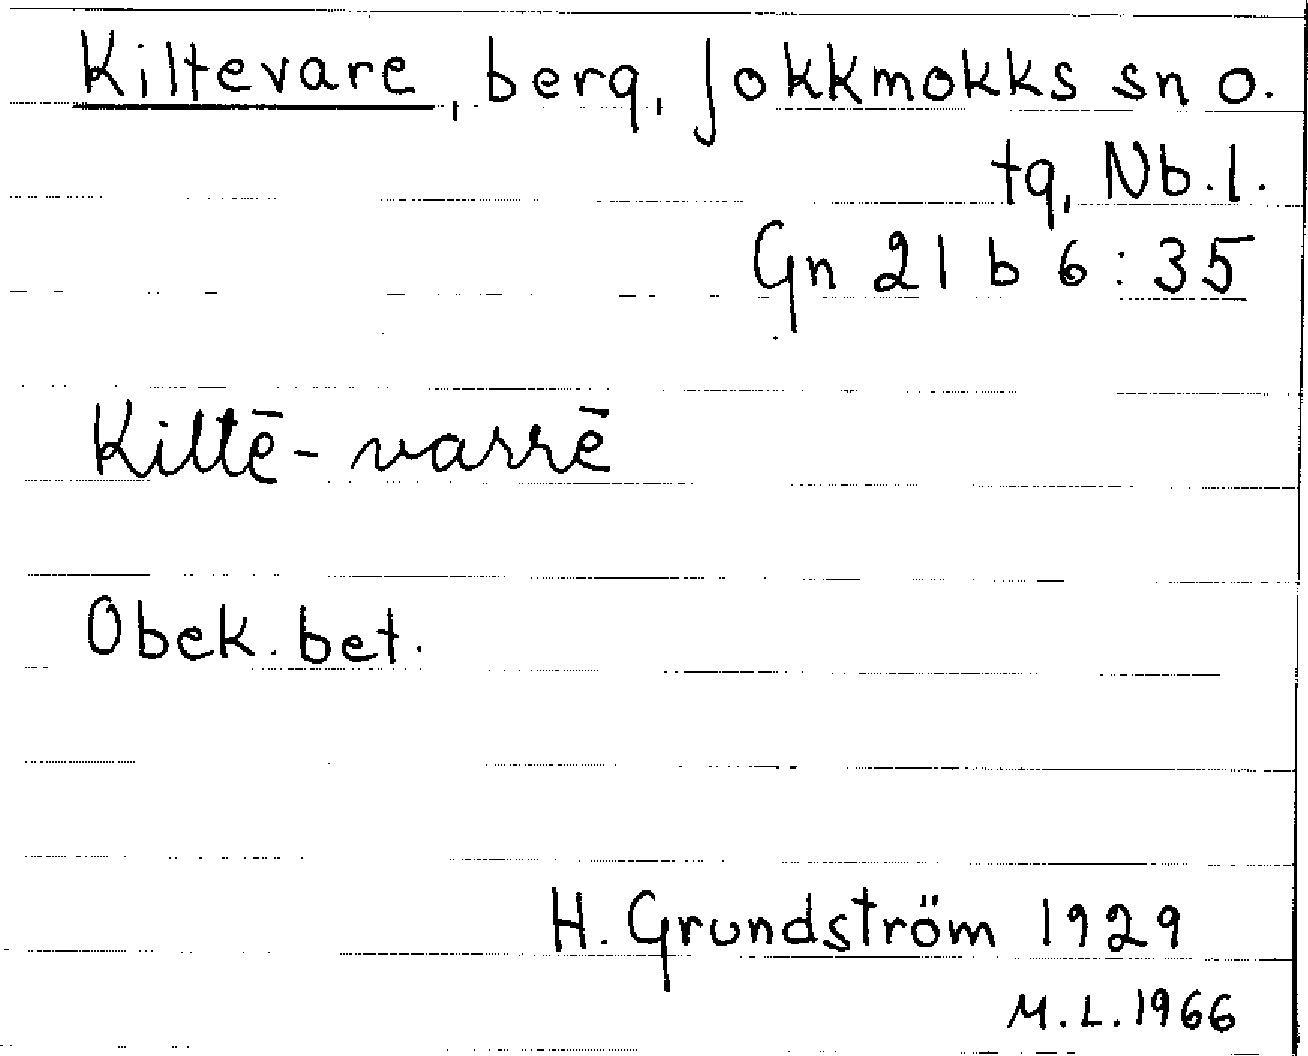 Kiltevare, berg, Jokkmokks sn o.
tg, Nb.l.
Gn 21 b 6:35
Kiltē-varrē
Obek. bet.
H. Grundström 1929
M.L. 1966